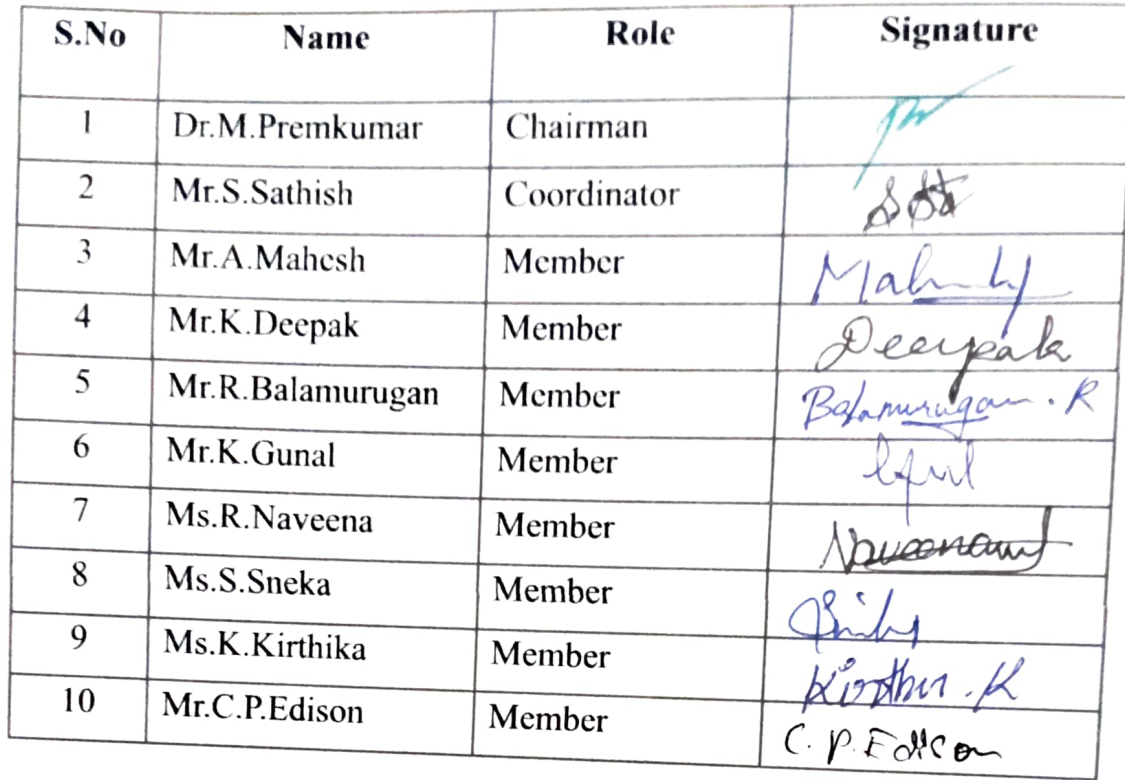 S.No Name Role Signature
1 Dr.M.Premkumar Chairman
2 Mr.S.Sathish Coordinator
3 Mr.A.Mahesh Member
4 Mr.K.Deepak Member Deepak
5 Mr.R.Balamurugan Member Balamurugan.R
6 Mr.K.Gunal Member
7 Ms.R.Naveena Member
8 Ms.S.Sneka Member
9 Ms.K.Kirthika Member
10 Mr.C.P.Edison Member C.P.Edison